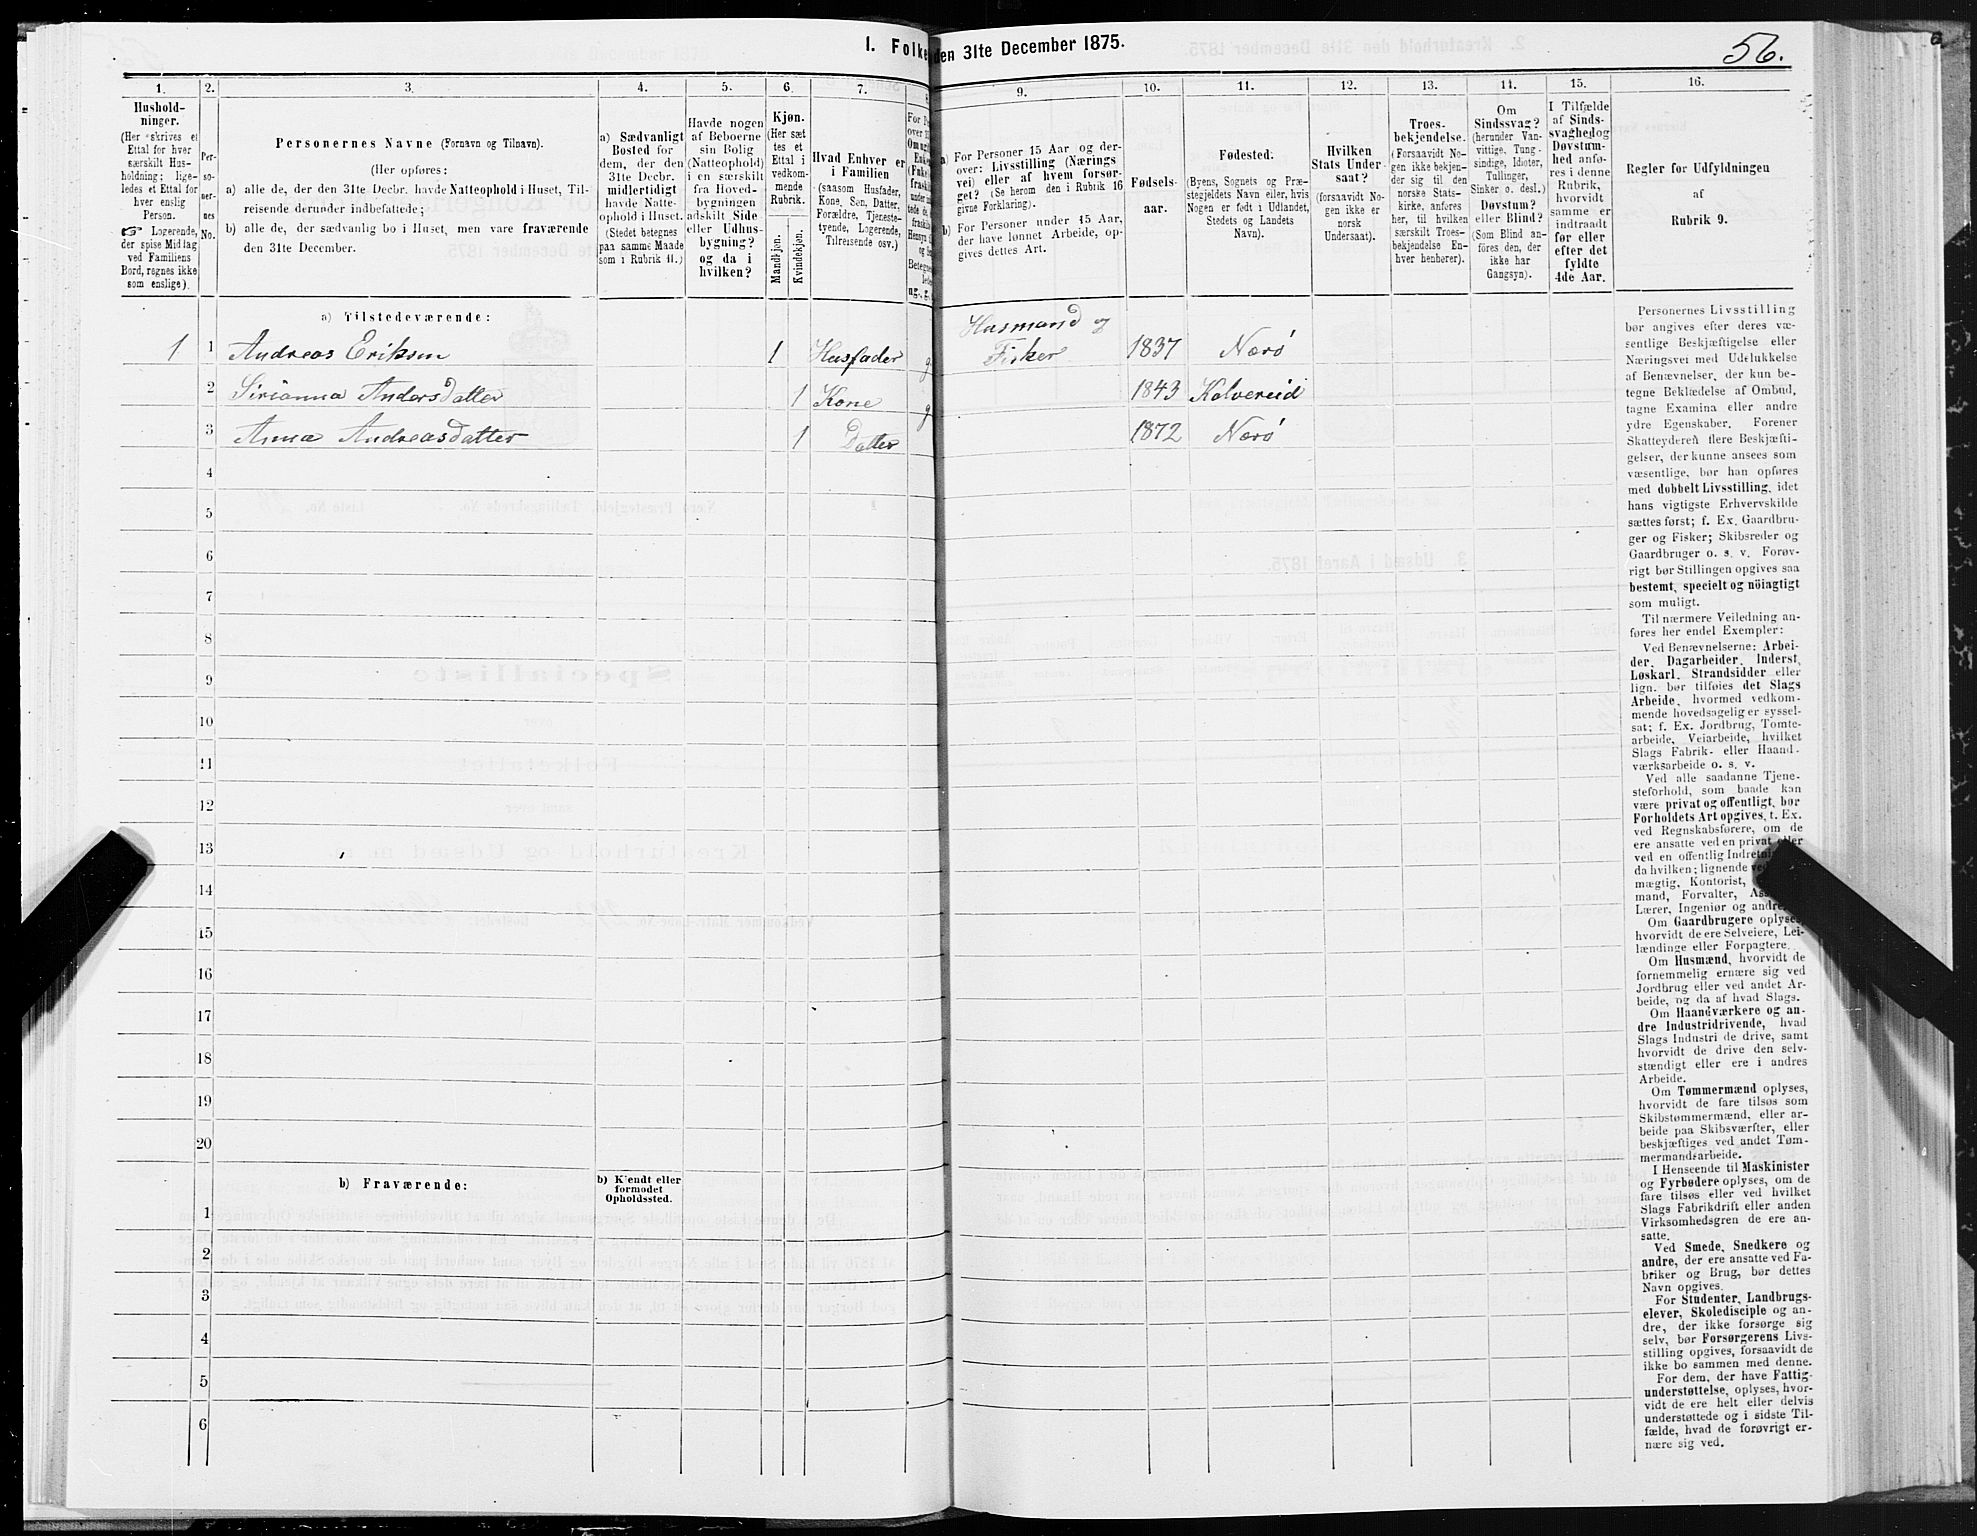 I. Folke den 31te December 1875.
56.
1. 2. 3. 4. 5. 6. 7. 8 9. 10. 11. 12. 13. 14. 15. 16.
Hushold-
ninger.
(Her skrives et
Ettal for hver
særskilt Hus-
holdning; lige-
ledes et Ettal for
hver enslig
Person.
☞ Logerende,
der spise Middag
ved Familiens
Bord, regnes ikke
som enslige).
Per-
so-
ner-
nes
No.
Personernes Navne (Fornavn og Tilnavn).
(Her opføres:
a) alle de, der den 31te Decbr. havde Natteophold i Huset, Til-
reisende derunder indbefattede;
b) alle de, der sædvanlig bo i Huset, men vare fraværende
den 31te December.
a) Sædvanligt
Bosted for
dem, der den
31te Decbr.
midlertidigt
havde Natte-
ophold i Huset.
(Stedet betegnes
paa samme Maade
som i Rubrik 11.)
Havde nogen
af Beboerne
sin Bolig
(Natteophold)
i en særskilt
fra Hoved-
bygningen
adskilt Side-
eller Udhus-
bygning?
og da i
hvilken?
Kjøn.
(Her sæt-
tes et
Ettal i
vedkom-
mende
Rubrik.
Mandkjøn.
Kvindekjøn.
Hvad Enhver er
i Familien
(saasom Husfader,
Kone, Søn, Datter,
Forældre, Tjeneste-
tyende, Logerende,
Tilreisende osv.)
a) For Personer 15 Aar og der-
over: Livsstilling (Nærings-
vei) eller af hvem forsør-
get? (Se herom den i Rubrik 16
givne Forklaring).
b) For Personer under 15 Aar,
der have lønnet Arbeide, op-
gives dettes Art.
Fødsels-
aar.
Fødested.
(Byens, Sognets og Præ-
stegjeldets Navn eller, hvis
Nogen er født i Udlandet,
Stedets og Landets
Navn).
Hvilken
Stats Under-
saat?
(forsaavidt No-
gen ikke er
norsk
Undersaat).
Troes-
bekjendelse.
(Forsaavidt No-
gen ikke bekjen-
der sig til den
norske Stats-
kirke, anføres
her, til hvilken
særskilt Troes-
bekjendelse En-
hver henhører).
Om
Sindssvag?
(herunder Van-
vittige, Tung-
sindige, Idioter,
Sinker o. desl.)
Døvstum?
eller Blind?
(Som Blind an-
føres den, der
ikke har
Gangsyn).
I Tilfælde
af Sinds-
svaghed og
Døvstum-
hed anfø-
res i denne
Rubrik,
hvorvidt
samme er
indtraadt
før eller
efter det
fyldte
4de Aar.
Regler for Udfyldningen
af
Rubrik 9.
a) Tilstedeværende:
1 1 Andreas Eriksen 1 Husfader g Husmand og Fisker 1837 Nærø
2 Sirianna AndersDatter 1 Kone g 1843 Kolvereid
3 Anna AndreasDatter 1 Datter 1872 Nærø
4
5
6
7
8
9
10
11
12
13
14
15
16
17
18
19
20
b) Fraværende:
b) Kjendt eller
formodet
Opholdssted.
1
2
3
4
5
6
Personernes Livsstilling
bør angives efter deres væ-
sentlige Beskjæftigelse eller
Næringsvei med Udelukkelse
af Benævnelser, der kun be-
tegne Beklædelse af Ombud,
tagne Examina eller andre
ydre Egenskaber. Forener
Skatteyderen flere Beskjæfti-
gelser, der kunne ansees som
væsentlige, bør han opføres
med dobbelt Livsstilling, idet
hans vigtigste Erhvervskilde
sættes først; f. Ex. Gaardbru-
ger og Fisker; Skibsreder og
Gaardbruger o. s. v. Forøv-
rigt bør Stillingen opgives saa
bestemt, specielt og nöiagtigt
som muligt.
Til nærmere Veiledning an-
føres her endel Exempler:
Ved Benævnelserne: Arbei-
der, Dagarbeider, Inderst,
Løskarl, Strandsidder eller
lign. bør tilføies det Slags
Arbeide, hvormed vedkom-
mende hovedsagelig er syssel-
sat; f. Ex. Jordbrug, Tomte-
arbeide, Veiarbeide, hvilket
Slags Fabrik- eller Haand-
værksarbeide o. s. v.
Ved alle saadanne Tjene-
steforhold, som baade kan
være privat og offentligt, bør
Forholdets Art opgives, t. Ex.
ved Regnskabsførere, om de
ere ansatte ved en privat eller
ved en offentlig Indretning
da hvilken; lignende ved
mægtig, Kontorist,
mand, Forvalter,
Lærer, Ingeniør og andre.
Om Gaardbrugere oplyses,
hvorvidt de ere Selveiere, Lei-
lændinge eller Forpagtere.
Om Husmænd, hvorvidt de
fornemmelig ernære sig ved
Jordbrug eller ved andet Ar-
beide, og da af hvad Slags.
Om Haandværkere og an-
dre Industridrivende, hvad
Slags Industri de drive, samt
hvorvidt de drive den selv-
stændigt eller ere i andres
Arbeide.
Om Tømmermænd oplyses,
hvorvidt de fare tilsøs som
Skibstømmermænd, eller ar-
beide paa Skibsværfter, eller
beskjæftiges ved andet Tøm-
mermandsarbeide.
I Henseende til Maskinister
og Fyrbødere oplyses, om de
fare tilsøs eller ved hvilket
Slags Fabrikdrift eller anden
Virksomhedsgren de ere an-
satte.
Ved Smede, Snedkere og
andre, der ere ansatte ved Fa-
briker og Brug, bør dettes
Navn opgives.
For Studenter, Landbrugs-
elever, Skoledisciple og an-
dre, der ikke forsørge sig
selv, bør Forsørgerens Livs-
stilling opgives, forsaavidt de
ikke bo sammen med denne.
For dem, der have Fattig-
understøttelse, oplyses, hvor-
vidt de ere helt eller delvis
understøttede og i sidste Til-
fælde, hvad de forøvrigt er-
nære sig ved.